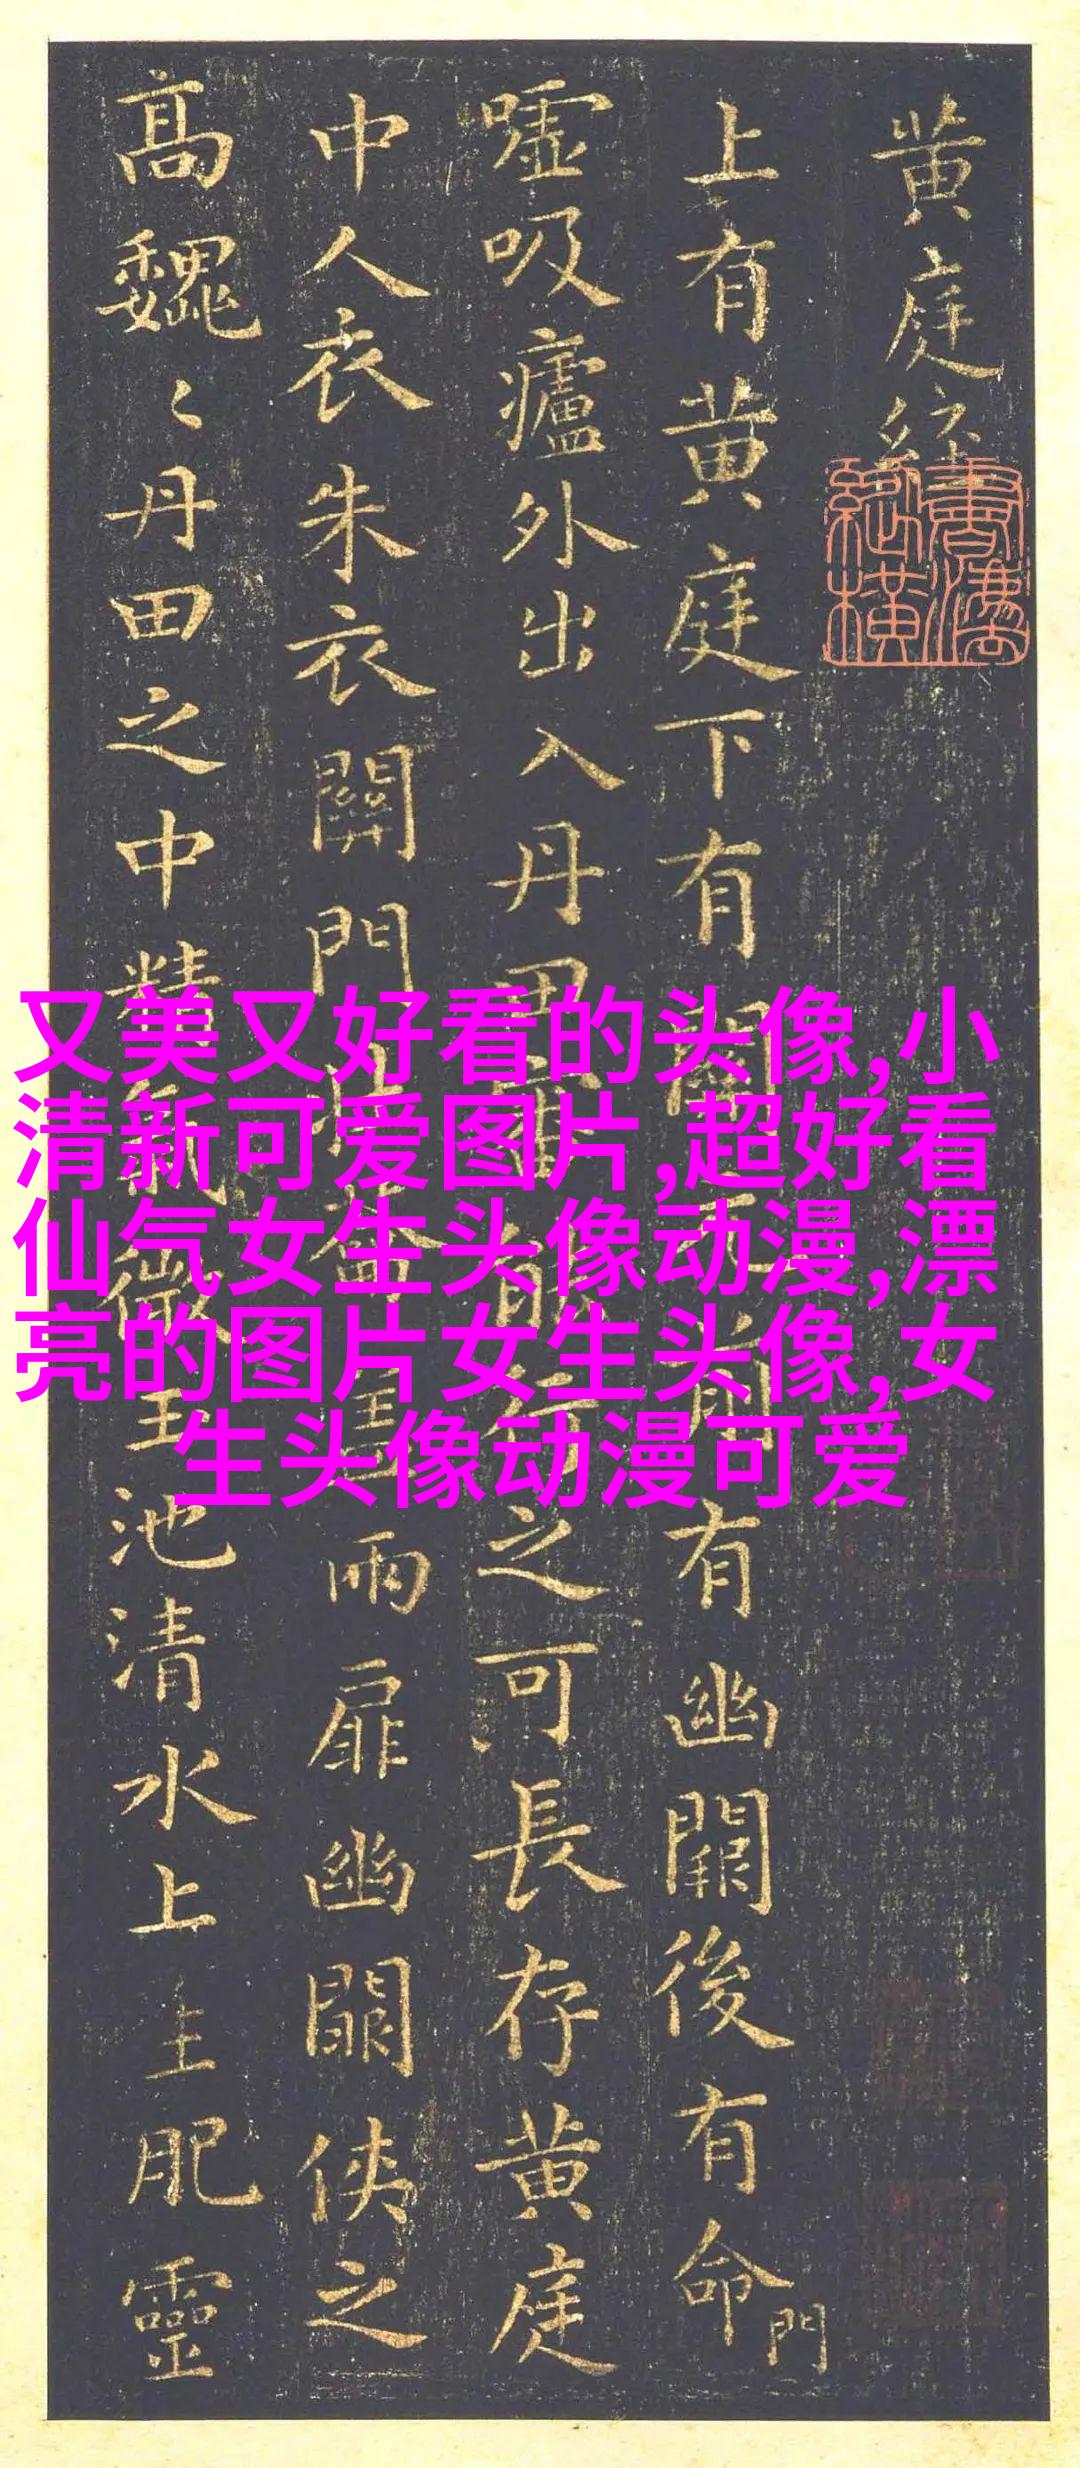 黄庭经
上有黄庭下有關元前有幽闕後有命門
嘘吸廬外出入丹田審能行之可長存黄庭
中人衣朱衣關門壯蘥蓋兩扉幽闕俠之
高魏〻丹田之中精氣微玉池清水上生肥靈
又美又好看的头像,小
清新可爱图片,超好看
仙气女生头像动漫,漂
亮的图片女生头像,女
生头像动漫可爱